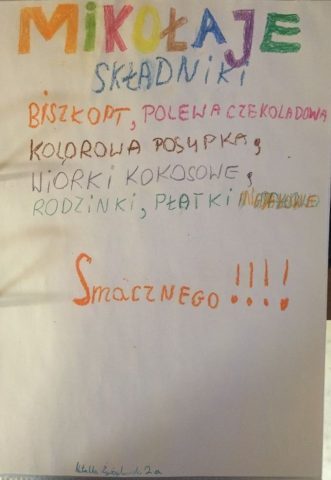 MIKOŁAJE
SKŁADNIKI
BISZKOPT, POLEWA CZEKOLADOWA
KOLOROWA POSYPKA,
WIÓRKI KOKOSOWE,
RODZINKI, PŁATKI
SMACZNEGO!!!!
2a